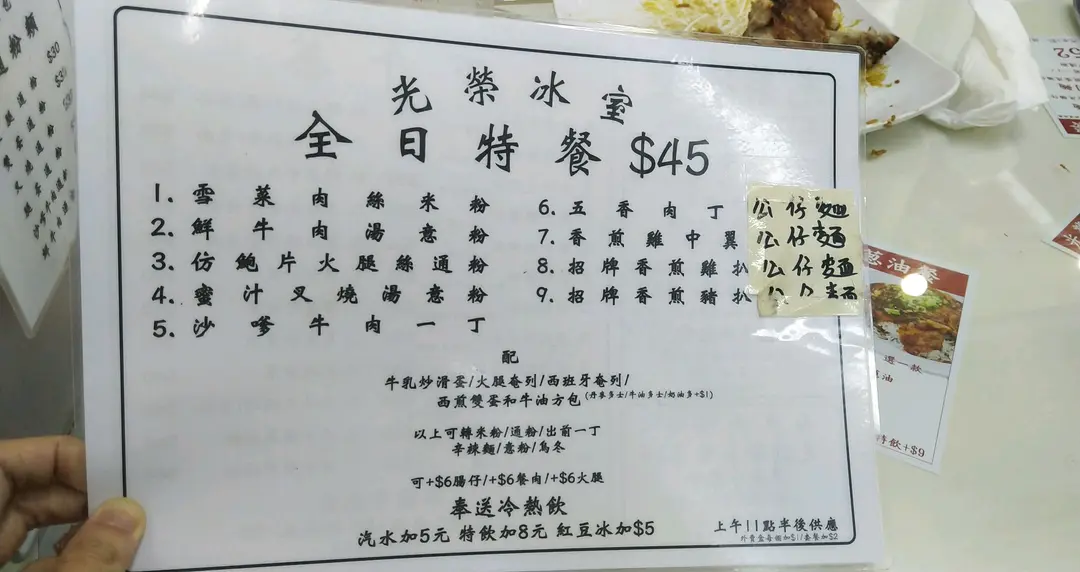 光榮冰室
全日特餐 $45
1. 雪菜肉絲米粉
2. 鮮牛肉湯意粉
3. 仿鮑片火腿絲通粉
4. 蜜汁叉燒湯意粉
5. 沙嗲牛肉一丁
6. 五香肉丁公仔麵
7. 香煎雞中翼公仔麵
8. 招牌香煎雞扒公仔麵
9. 招牌香煎豬扒公仔麵
配
牛乳炒滑蛋/火腿奄列/西班牙奄列/
西煎雙蛋和牛油方包(丹麥多士/牛油多士/奶油多+$1)
以上可轉米粉/通粉/出前一丁
辛辣麵/意粉/烏冬
可+$6腸仔/+$6餐肉/+$6火腿
奉送冷熱飲
汽水加5元 特飲加8元 紅豆冰加$5
上午11點半後供應
外賣盒每個加$1/套餐加$2
粉類
$30
蔥油餐
選一款
特飲+$9